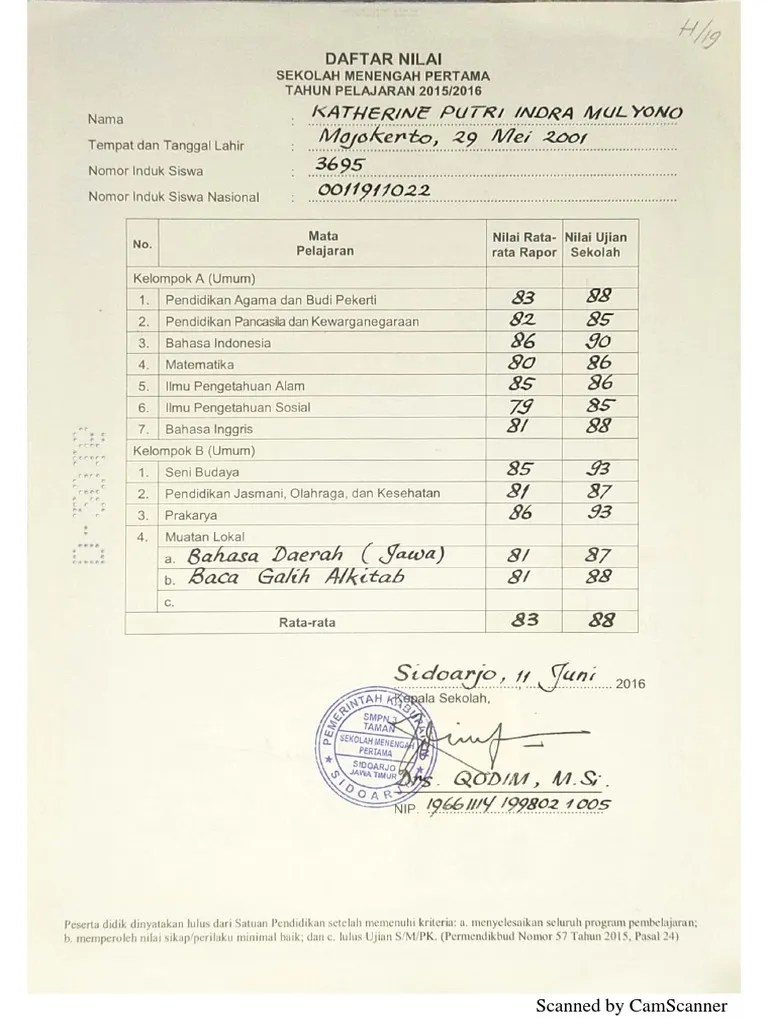 H/19
DAFTAR NILAI
SEKOLAH MENENGAH PERTAMA
TAHUN PELAJARAN 2015/2016
Nama : KATHERINE PUTRI INDRA MULYONO
Tempat dan Tanggal Lahir : Mojokerto, 29 Mei 2001
Nomor Induk Siswa : 3695
Nomor Induk Siswa Nasional : 0011911022
No. Mata Pelajaran Nilai Rata-rata Rapor Nilai Ujian Sekolah
Kelompok A (Umum)
1. Pendidikan Agama dan Budi Pekerti 83 88
2. Pendidikan Pancasila dan Kewarganegaraan 82 85
3. Bahasa Indonesia 86 90
4. Matematika 80 86
5. Ilmu Pengetahuan Alam 85 86
6. Ilmu Pengetahuan Sosial 79 85
7. Bahasa Inggris 81 88
Kelompok B (Umum)
1. Seni Budaya 85 93
2. Pendidikan Jasmani, Olahraga, dan Kesehatan 81 87
3. Prakarya 86 93
4. Muatan Lokal
a. Bahasa Daerah (Jawa) 81 87
b. Baca Galih Alkitab 81 88
c.
Rata-rata 83 88
Sidoarjo, 11 Juni 2016
Kepala Sekolah,
PEMERINTAH KABUPATEN
SIDOARJO
SMPN 2
TAMAN
SEKOLAH MENENGAH
PERTAMA
SIDOARJO
JAWA TIMUR
Drs. QODIM, M.Si.
NIP. 19661114 199802 1 005
Peserta didik dinyatakan lulus dari Satuan Pendidikan setelah memenuhi kriteria: a. menyelesaikan seluruh program pembelajaran;
b. memperoleh nilai sikap/perilaku minimal baik; dan c. lulus Ujian S/M/PK. (Permendikbud Nomor 57 Tahun 2015, Pasal 24)
Scanned by CamScanner